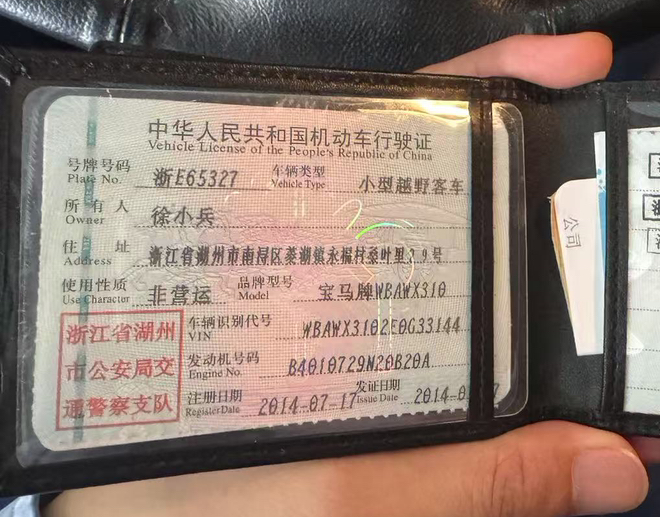 中华人民共和国机动车行驶证
Vehicle License of the People's Republic of China
号牌号码 浙E65327 车辆类型 小型越野客车
Plate No. Vehicle Type
所有人 徐小兵
Owner
住址 浙江省湖州市南浔区菱湖镇永福村桑叶里29号
Address
使用性质 非营运 品牌型号 宝马牌WBAWX310
Use Character Model
浙江省湖州
市公安局交
通警察支队
车辆识别代号 WBAWX3102E0G33144
VIN
发动机号码 B4010729N20B20A
Engine No.
注册日期 2014-07-17 发证日期 2014-0
Register Date Issue Date
公司